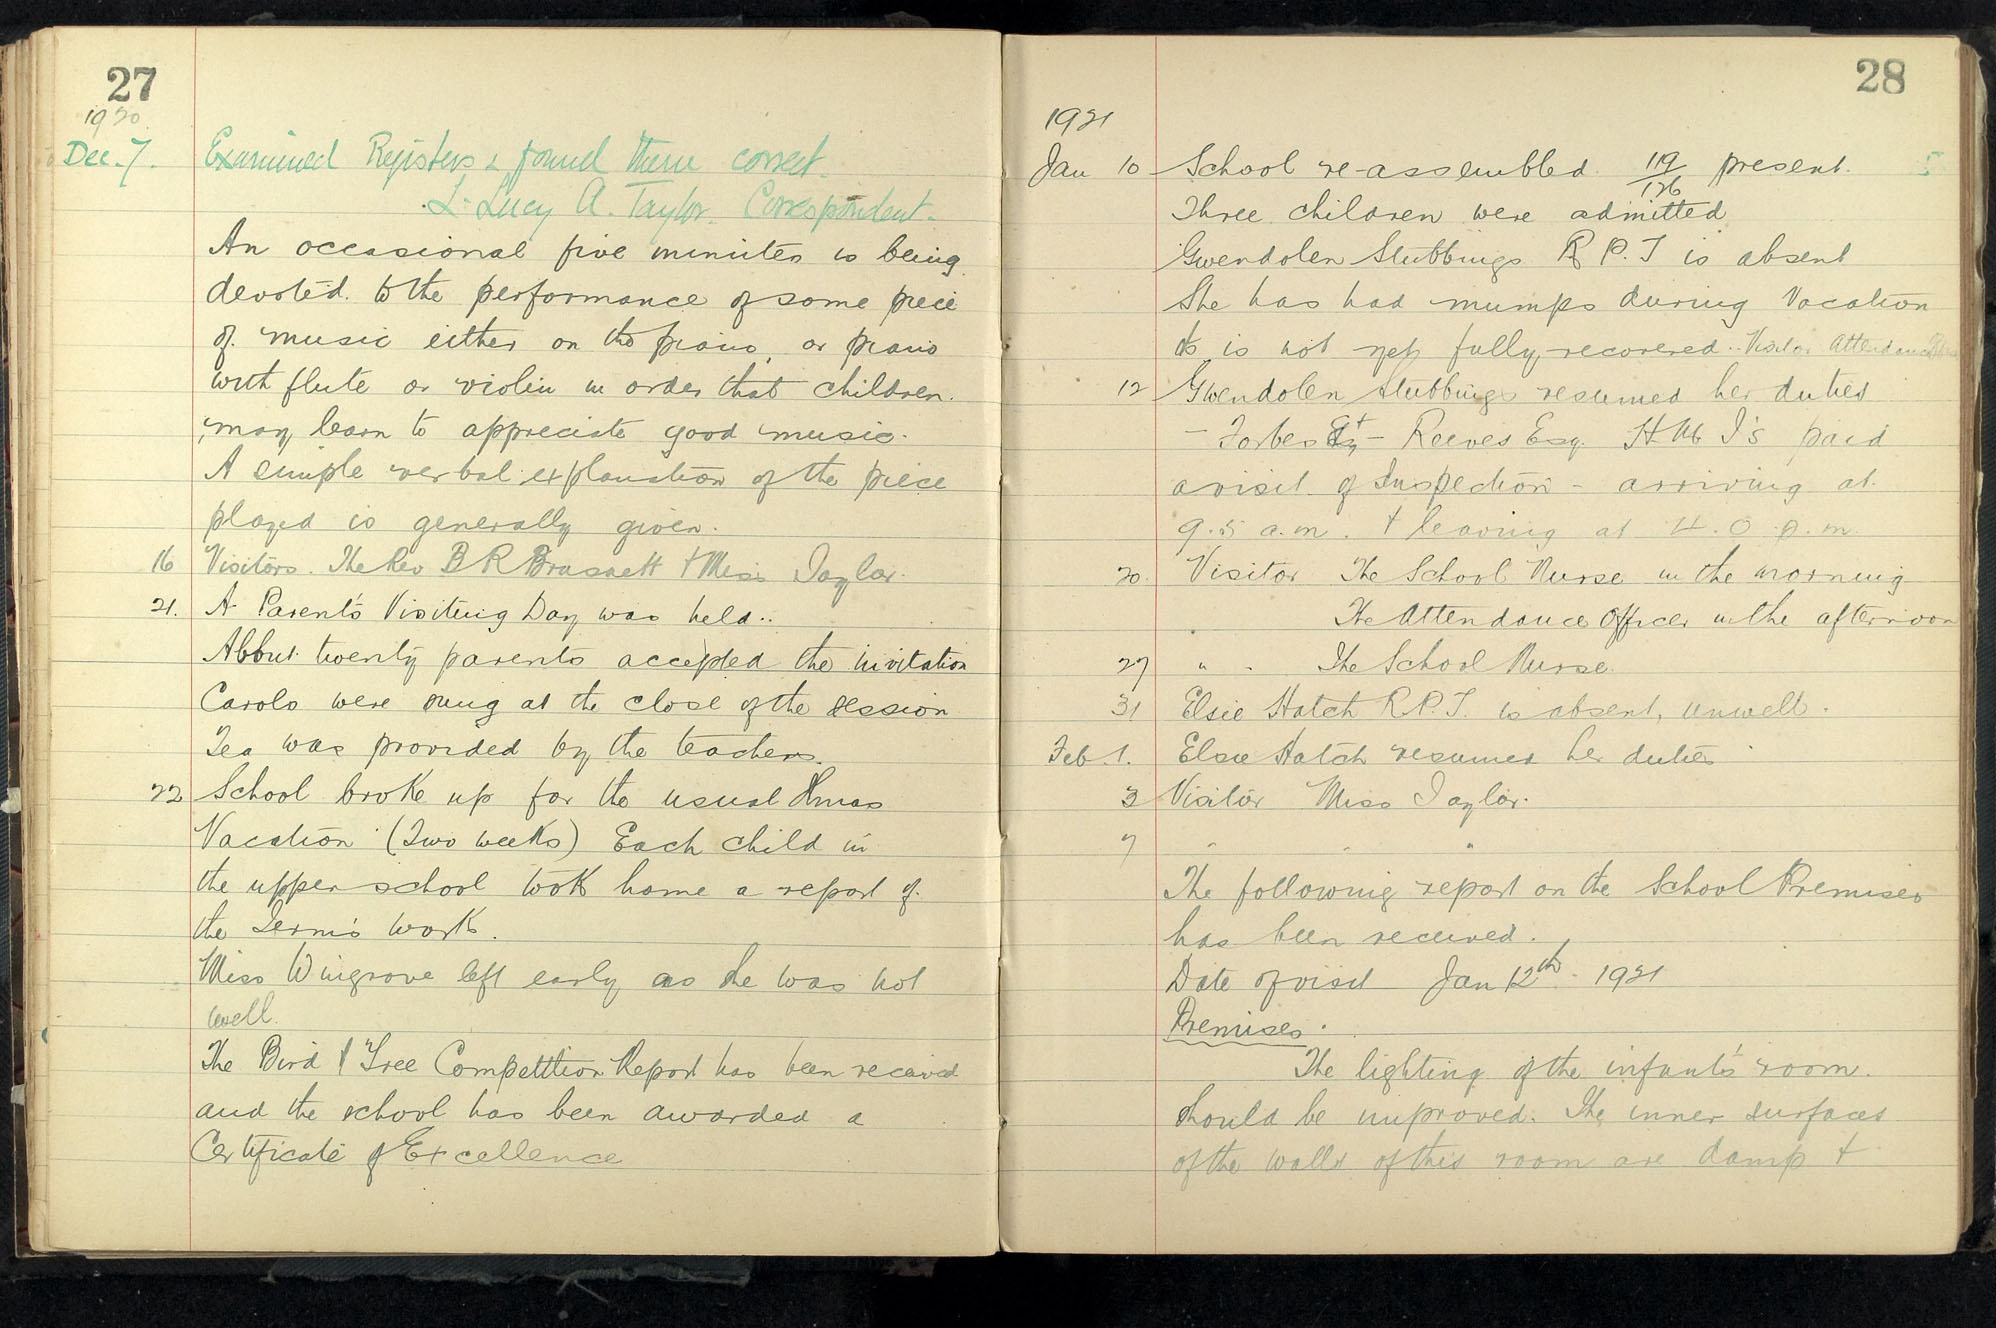 27
1920
Dec. 7. Examined Registers & found them correct.
L. Lucy A. Taylor. Correspondent.
An occasional five minutes is being
devoted to the performance of some piece
of music either on the piano, or piano
with flute or violin in order that children
may learn to appreciate good music.
A simple verbal explanation of the piece
played is generally given.
16 Visitors. The Rev B R Brasnett & Miss Taylor.
21. A Parent's Visiting Day was held.
About twenty parents accepted the invitation
Carols were sung at the close of the session
Tea was provided by the teachers.
22 School broke up for the usual Xmas
Vacation (Two weeks) Each child in
the upper school took home a report of
the Term's work.
Miss Wingrove left early as she was not
well.
The Bird & Tree Competition Report has been received
and the school has been awarded a
Certificate of Excellence
28
1921
Jan 10 School re-assembled. 119/126 present.
Three children were admitted
Gwendolen Stubbings R P. T is absent
She has had mumps during Vacation
& is not yet fully recovered. Visitor Attendance
12 Gwendolen Stubbings resumed her duties
– Forbes Esq & – Reeves Esq. H.M I's paid
a visit of Inspection – arriving at
9.5 a.m. & leaving at 4.0 p.m.
20. Visitor The School Nurse in the morning
The Attendance Officer in the afternoon
27 " " The School Nurse.
31 Elsie Hatch R.P.T. is absent, unwell.
Feb. 1. Elsie Hatch resumed her duties
3 Visitor Miss Taylor.
7 " " "
The following report on the School Premises
has been received.
Date of visit Jan 12th 1921
Premises.
The lighting of the infants' room
should be improved. The inner surfaces
of the walls of this room are damp &